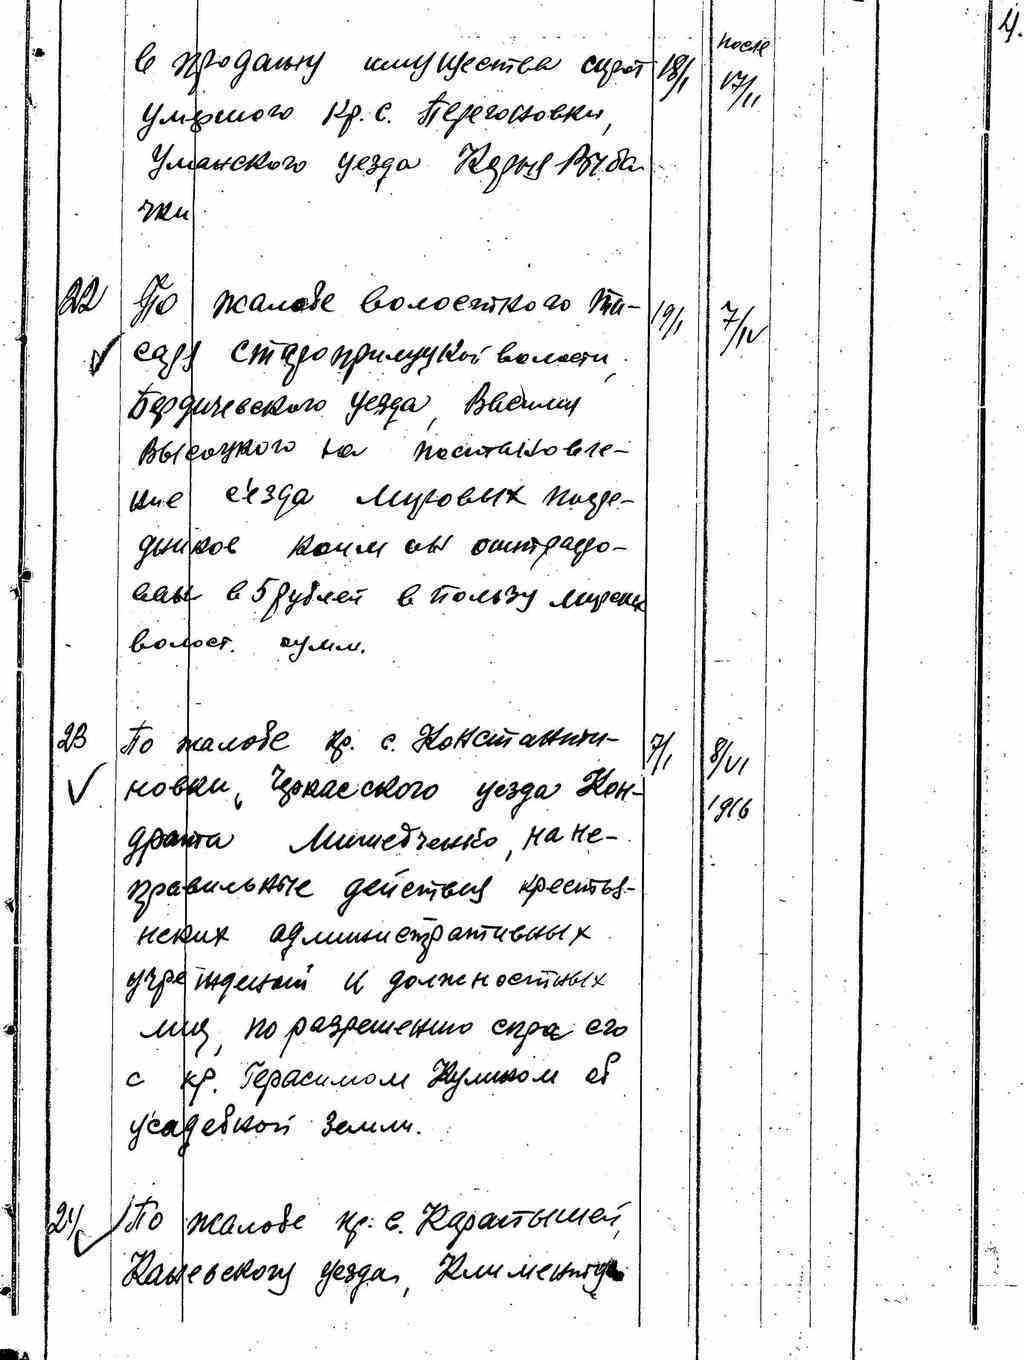 4.
в продажу имущества сирот 18/I после 17/II
умершого кр. с. Перегоновки,
Уманского уезда Карпа Рыба
чки
22 По жалобе волосткого пи- 19/I 7/IV
саря Староприлуцкой волости,
Бердичевского уезда, Василия
Высоцкого на постановле-
ние с'езда мировых посре-
дников коим он оштрафо-
ван в 5 рублей в пользу мирских
волост. сумм.
23 По жалобе кр. с. Константи- 7/I 8/VI
новки, Черкасского уезда Кон- 1916
драта, на не-
правильные действия крестья-
нских административных
учреждений и должностных
лиц, по разрешению спора его
с кр. Герасимом Куликом об
усадебной земли.
24 По жалобе кр. с. Карапышей,
Каневского уезда, Климентия